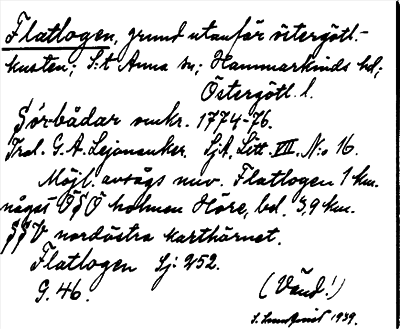 Flatlogen, grund utanför östergötl.-
kusten; S:t Anna sn; Hammarkinds hd;
Östergötl. l.
Sörbådar omkr. 1774-76.
Trol. G. A. Lejonanker. SjA, Litt. VII, N:o 16.
Möjl. avsågs nuv. Flatlogen 1 km.
något OSO holmen Höre, bel. 3,9 km.
SSV nordöstra karthörnet.
Flatlogen Sj: 252.
G. 46.
(Vänd!)
1939.